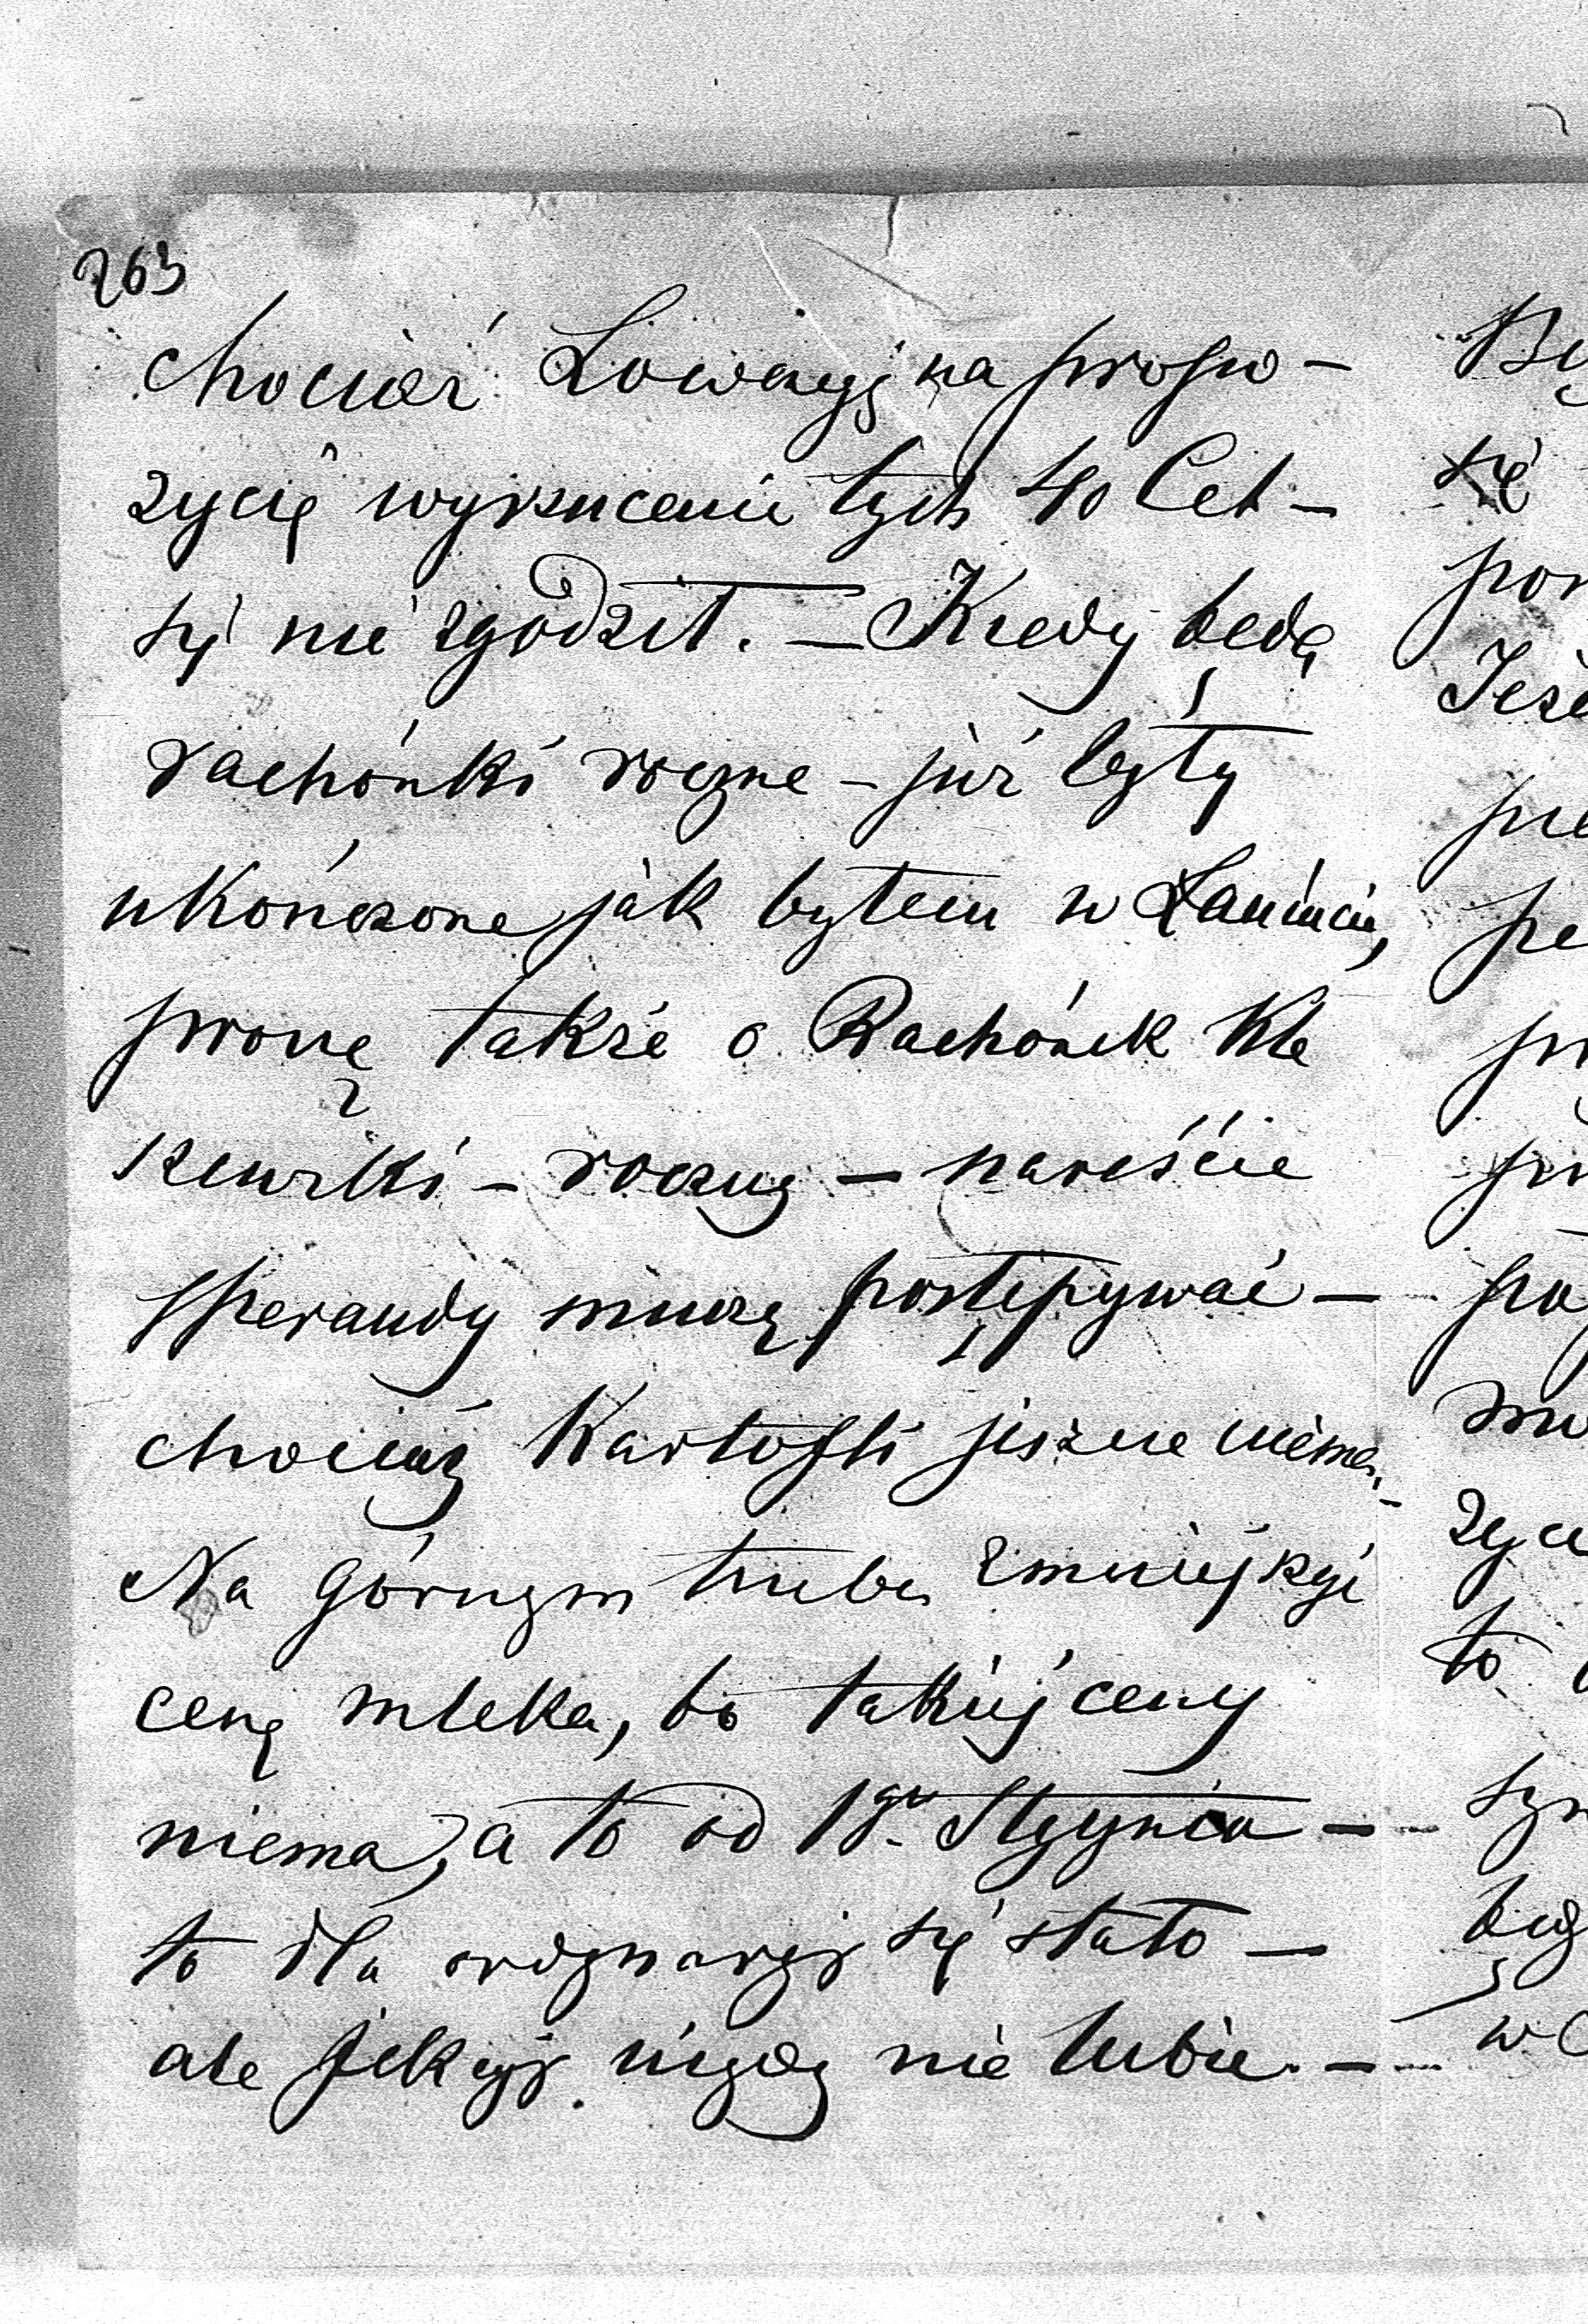 263
chociaż Łowczyj na propo-
zycię wyrzucenie tych 40 Cet-
się nie zgodził. — Kiedy będą
rachónki roczne – już były
ukończone jak byłem w Łańcucie,
proszę także o Rachónek
roczny — nareście
Sperandy muszę postępywać —
chociaż Kartofli jeszcze niema. -
Na Górnym trzeba zmniejszyć
cenę mleka, bo takiej ceny
niema, a to od 1go Stycznia —
to dla ordynaryj się stało —
ale nigdy nie lubie. —
By
się
pon
Jeże
pie
pe
życe
to
w